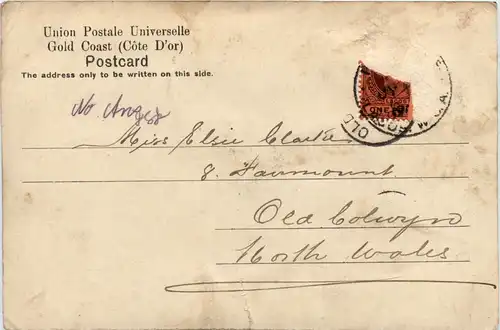 Union Postale Universelle
Gold Coast (Côte D'or)
Postcard
The address only to be written on this side.
No
Miss Elsie Clarke
8. Fairmount.
Old Colwyn
North Wales
ONE
OLD